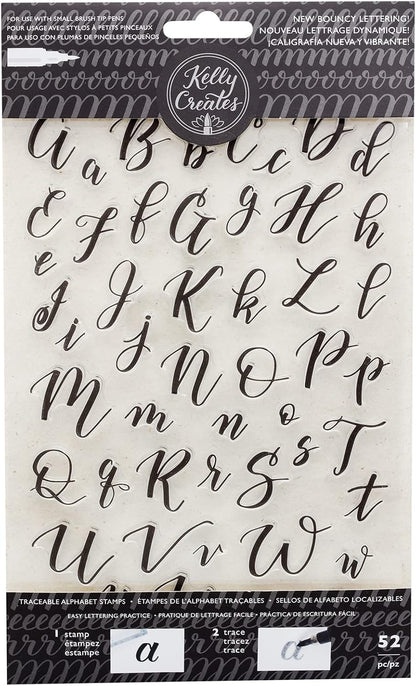 FOR USE WITH SMALL BRUSH TIP PENS
POUR USAGE AVEC STYLOS À PETITS PINCEAUX
PARA USO CON PLUMAS DE PINCELES PEQUEÑOS
NEW BOUNCY LETTERING!
NOUVEAU LETTRAGE DYNAMIQUE!
¡CALIGRAFÍA NUEVA Y VIBRANTE!
Kelly
Creates
A a B b C c D d
E e F f G g H h
I i J j K k L l
M m N n O o P p
Q q R r S s T t
U V v W w
TRACEABLE ALPHABET STAMPS • ÉTAMPES DE L'ALPHABET TRAÇABLES • SELLOS DE ALFABETO LOCALIZABLES
EASY LETTERING PRACTICE • PRATIQUE DE LETTRAGE FACILE • PRÁCTICA DE ESCRITURA FÁCIL
1 stamp
étampez
estampe
a
2 trace
tracez
trace
a
52
pc/pz